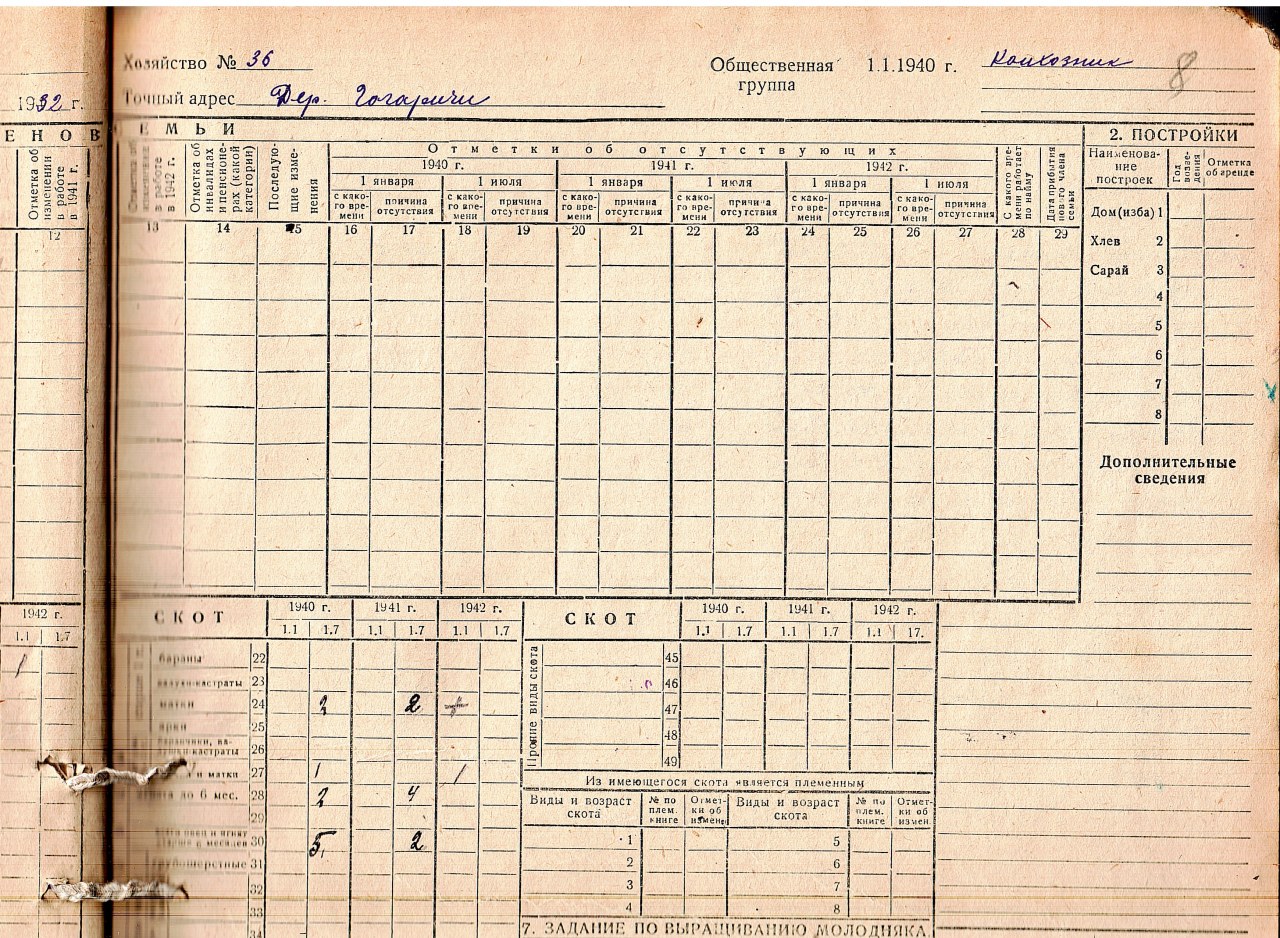 Хозяйство № 36
Общественная группа 1.1.1940 г. Колхозник
8
1932 г.
Точный адрес Дер. Гогаричи
ЕНОВ
ЕМЬИ
2. ПОСТРОЙКИ
Отметка об изменении в работе в 1941 г.
в работе в 1942 г.
Отметка об инвалидах и пенсионерах (какой категории)
Последующие изменения
Отметки об отсутствующих
1940 г. 1941 г. 1942 г.
1 января 1 июля 1 января 1 июля 1 января 1 июля
с какого времени причина отсутствия с какого времени причина отсутствия с какого времени причина отсутствия с какого времени причина отсутствия с какого времени причина отсутствия с какого времени причина отсутствия
С какого времени работает по найму
Дата прибытия нового члена семьи
Наименование построек
Год возведения
Отметка об аренде
12 13 14 15 16 17 18 19 20 21 22 23 24 25 26 27 28 29
Дом (изба) 1
Хлев 2
Сарай 3
4
5
6
7
8
Дополнительные сведения
1942 г.
1.1 1.7
1
СКОТ 1940 г. 1941 г. 1942 г.
1.1 1.7 1.1 1.7 1.1 1.7
бараны 22
валухи-кастраты 23
матки 24 2 2
ярки 25
26
и матки 27 1 1
до 6 мес. 28 2 4
29
30 5 2
грубошерстные 31
32
33
34
СКОТ 1940 г. 1941 г. 1942 г.
1.1 1.7 1.1 1.7 1.1 17.
Прочие виды скота
45
46
47
48
49
Из имеющегося скота является племенным
Виды и возраст скота № по плем. книге Отметки об измене Виды и возраст скота № по плем. книге Отметки об измен.
1 5
2 6
3 7
4 8
7. ЗАДАНИЕ ПО ВЫРАЩИВАНИЮ МОЛОДНЯКА